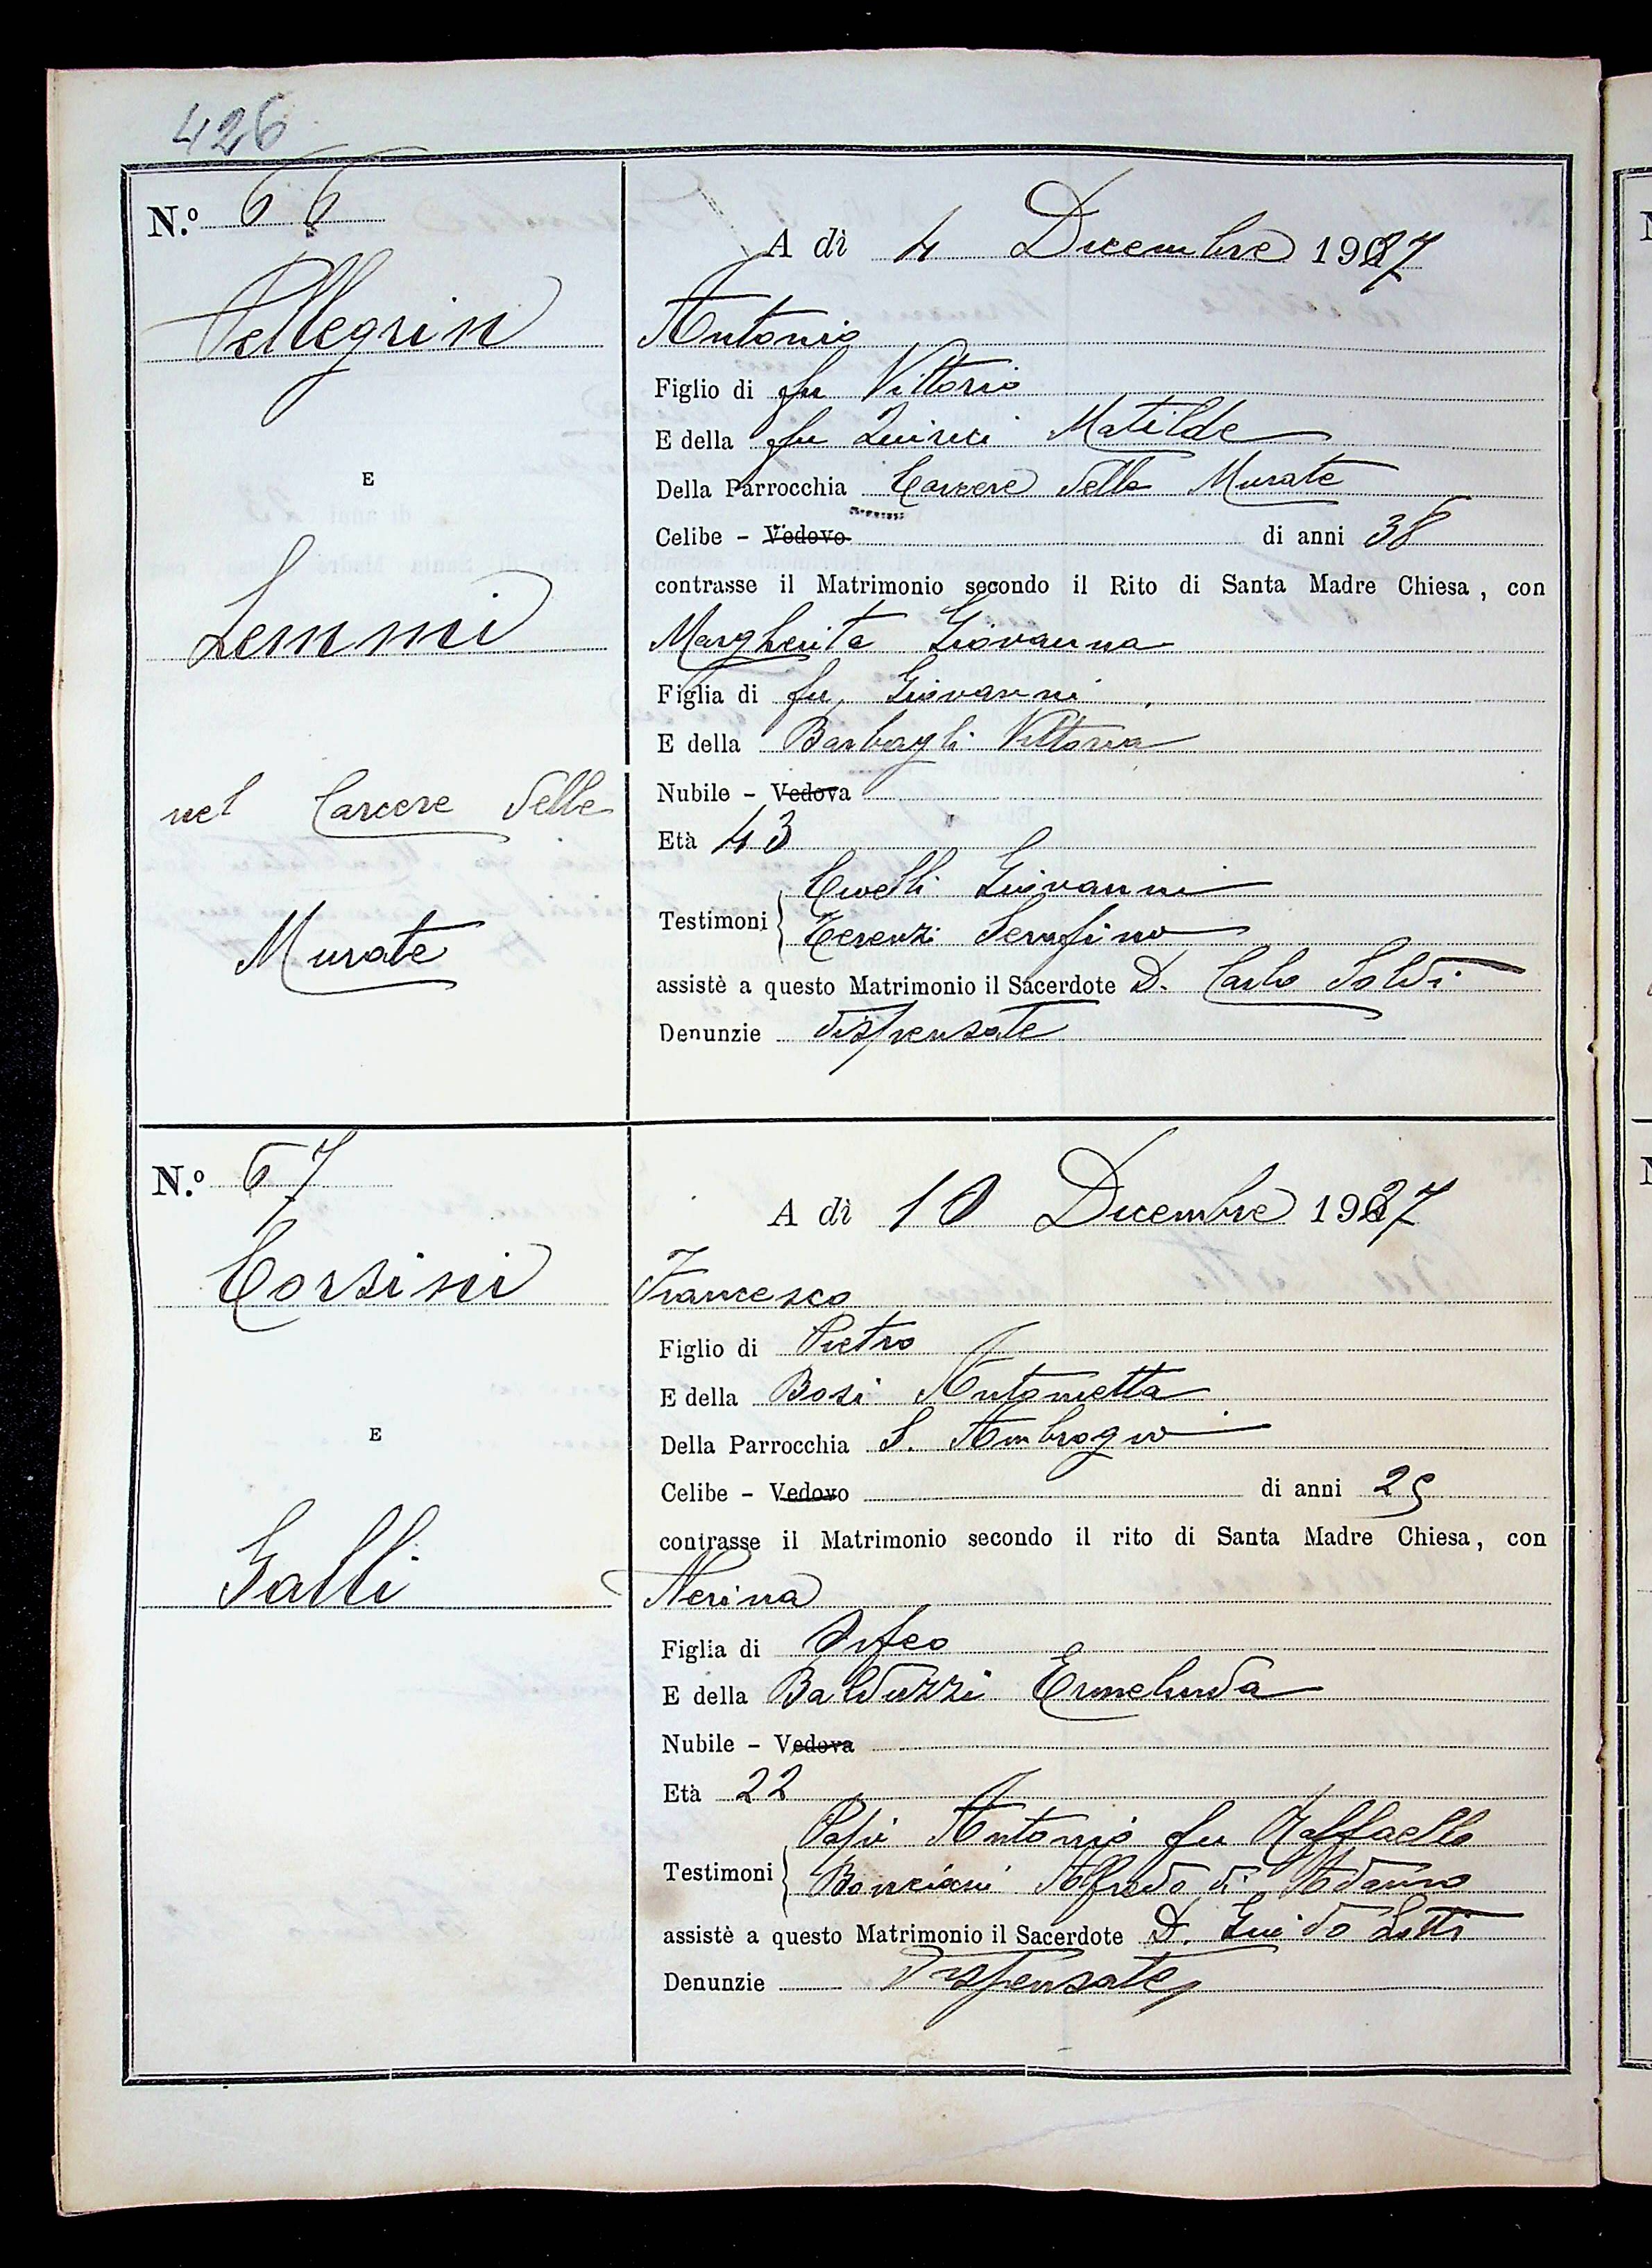 426
N.º 66
A dì 4 Decembre 1927
Pellegrin
Antonio
Figlio di fu Vittorio
E della fu Quirici Matilde
E
Della Parrocchia Carcere delle Murate
Celibe - Vedovo di anni 38
contrasse il Matrimonio secondo il Rito di Santa Madre Chiesa, con
Lemmi
Margherita Giovanna
Figlia di fu Giovanni
E della Barbagli Vittoria
nel Carcere delle
Murate
Nubile - Vedova
Età 43
Testimoni Giovanni
Terenzi Serafino
assistè a questo Matrimonio il Sacerdote D. Carlo Soldi
Denunzie dispensate
N.º 67
A dì 10 Decembre 1927
Corsini
Francesco
Figlio di Pietro
E della Bosi Antonietta
E
Della Parrocchia S. Ambrogio
Celibe - Vedovo di anni 25
contrasse il Matrimonio secondo il rito di Santa Madre Chiesa, con
Galli
Nerina
Figlia di Orfeo
E della Balduzzi Ermelinda
Nubile - Vedova
Età 22
Testimoni Papi Antonio fu Raffaello
Alfredo di Adamo
assistè a questo Matrimonio il Sacerdote D. Guido
Denunzie Dispensate